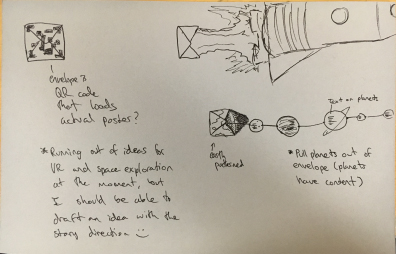 envelope is
QR code
that loads
actual poster?
*Running out of ideas for
VR and space exploration
at the moment, but
I should be able to
draft an idea with the
story direction :)
Text on planets
*Pull planets out of
envelope (planets
have content)